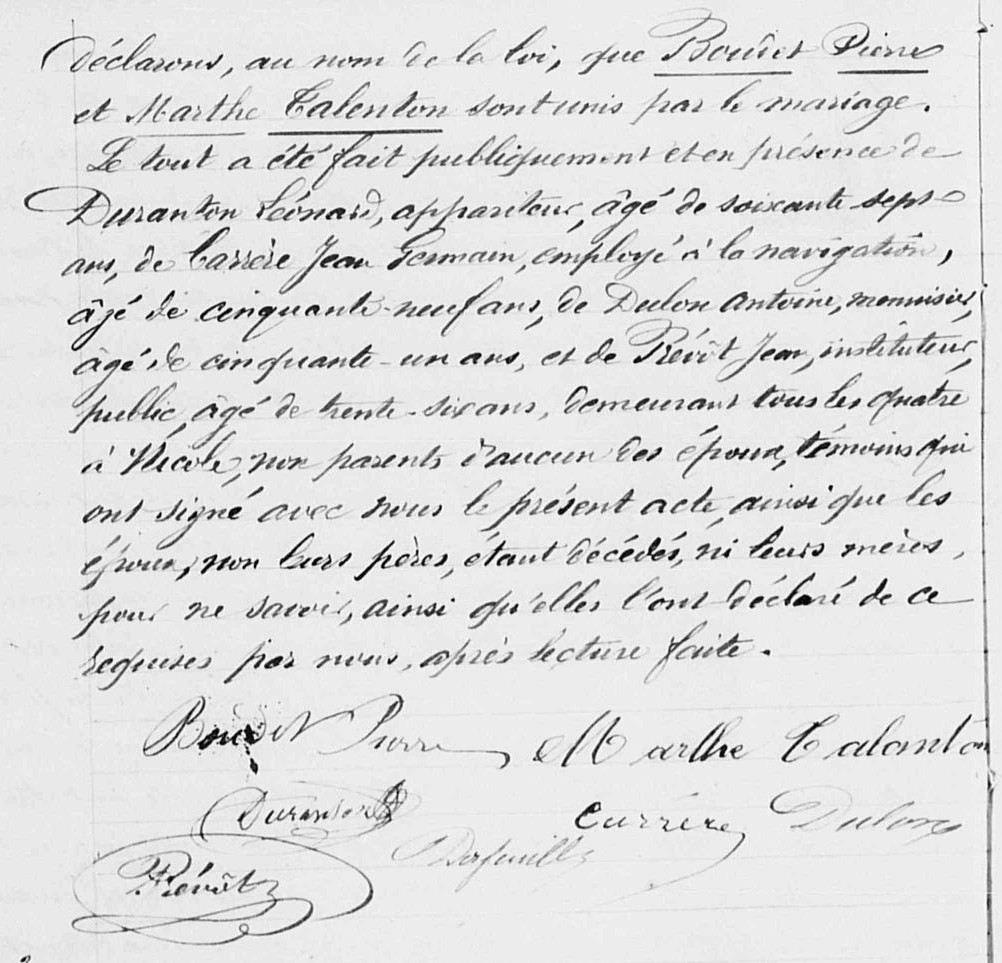 déclarons, au nom de la loi, que Boudet Pierre
et Marthe Talenton sont unis par le mariage.
Le tout a été fait publiquement et en présence de
Duranton Léonard, appariteur, âgé de soixante-sept
ans, de Carrère Jean Germain, employé à la navigation,
âgé de cinquante-neuf ans, de Dulon Antoine, menuisier,
âgé de cinquante-un ans, et de Prévôt Jean, instituteur
public, âgé de trente-six ans, demeurant tous les quatre
à Nicole, non parents d'aucun des époux, témoins qui
ont signé avec nous le présent acte, ainsi que les
époux, non leurs pères, étant décédés, ni leurs mères,
pour ne savoir, ainsi qu'elles l'ont déclaré de ce
requises par nous, après lecture faite.
Boudet Pierre Marthe Talenton
Duranton Carrère Dulon
Prévôt